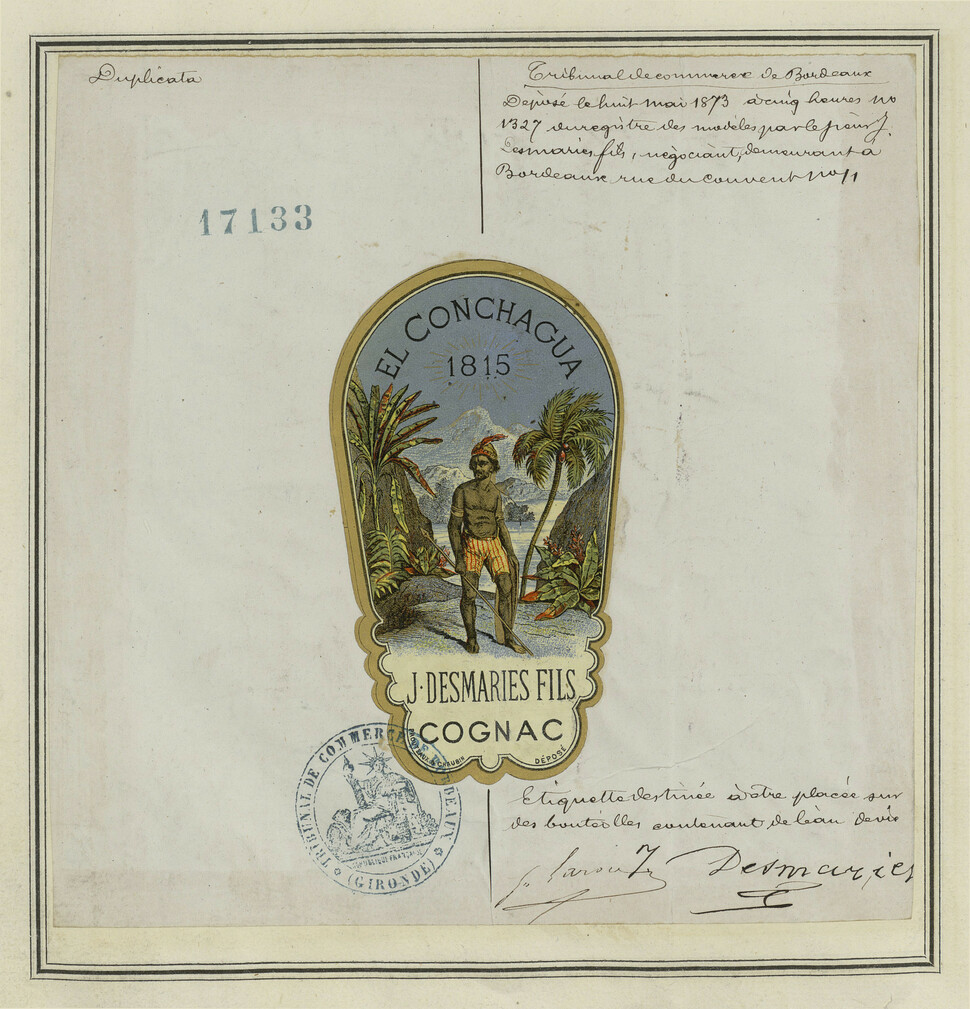 Duplicata
Tribunal de commerce de Bordeaux
Déposé le huit mai 1873 à cinq heures no
1327 du registre des modèles par le sieur J.
Desmaries fils, négociant, demeurant à
Bordeaux rue du couvent no 11
17133
EL CONCHAGUA
1815
J. DESMARIES FILS
COGNAC
DÉPOSÉ
TRIBUNAL DE COMMERCE DE BORDEAUX
RÉPUBLIQUE FRANÇAISE
(GIRONDE)
Etiquette destinée à être placée sur
des bouteilles contenant de l'eau de vie
J. Desmaries